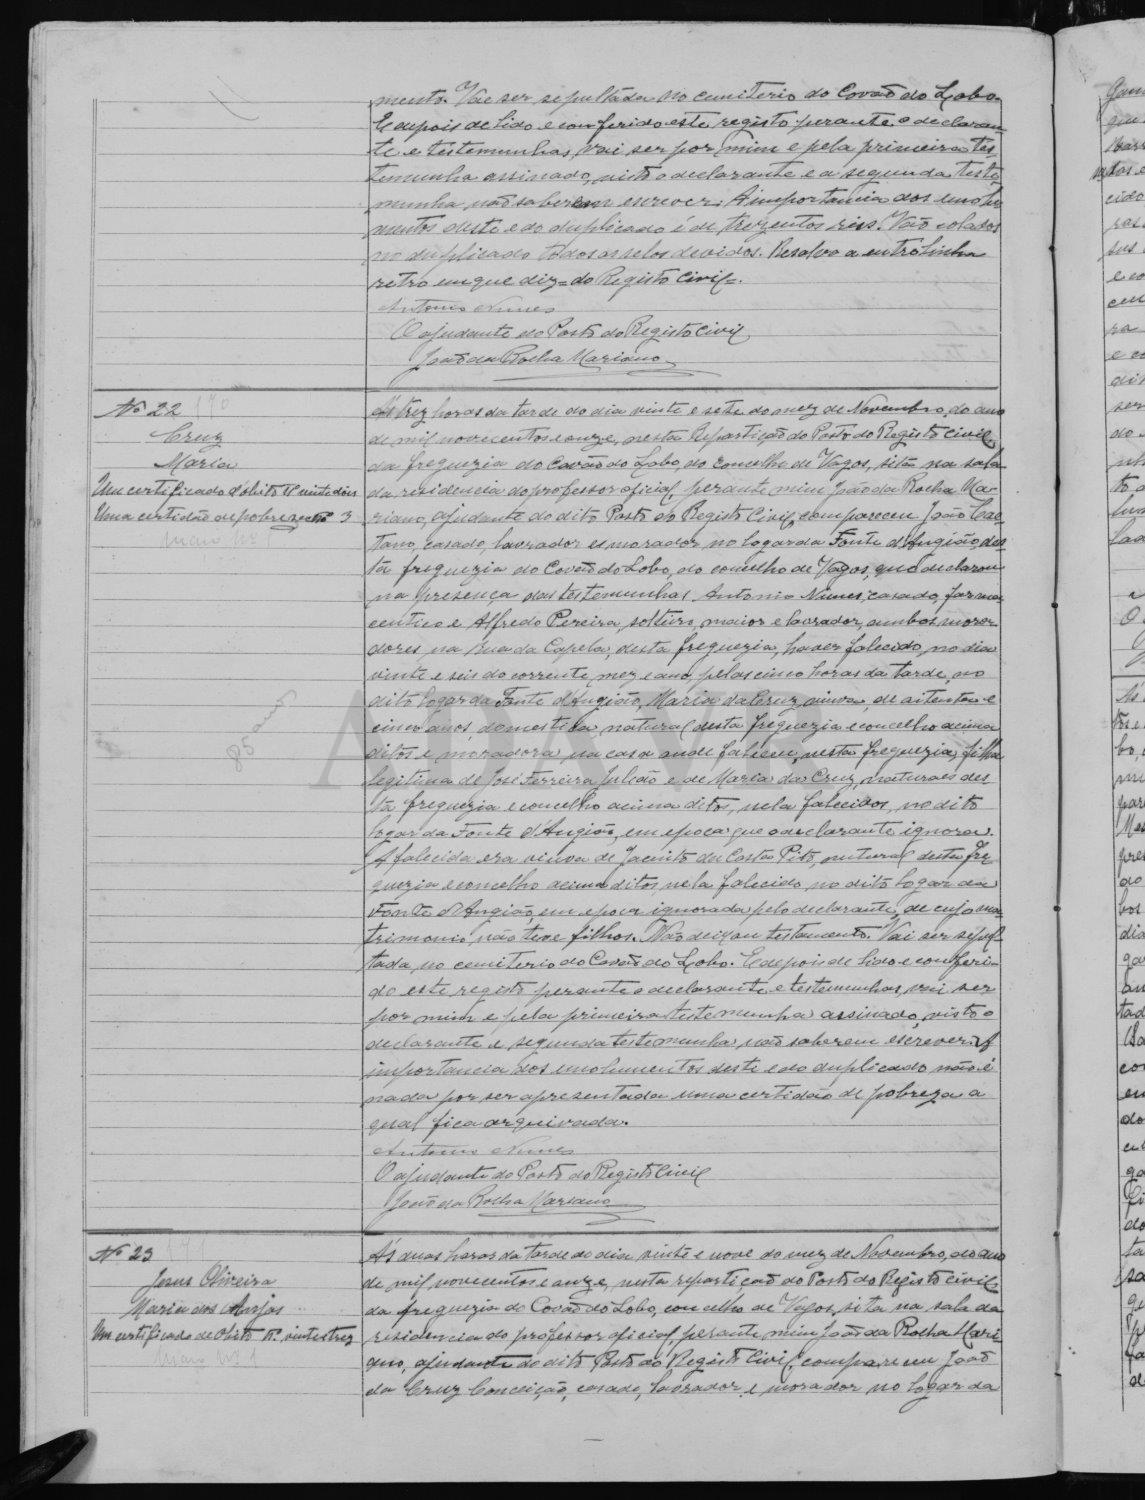 mento. Vae ser sepultada no cemiterio do Covão do Lobo.
E depois de lido e conferido este registo perante o declaran-
te e testemunhas, vai ser por mim e pela primeira tes-
temunha assinado, visto o declarante e a segunda teste-
munha não saberem escrever. A importancia dos emolu-
mentos deste e do duplicado é de trezentos reis. Vão colados
no duplicado todos os selos devidos. Resalvo a entrelinha
retro em que diz = do Registo Civil =.
Antonio Nunes
O ajudante do Posto do Registo Civil
João da Rocha Mariano
Nº 22 170
Cruz
Maria
Um certificado d'obito nº vinte dois
Uma certidão de pobreza nº 3
Maço nº 1
85 anos
Ás trez horas da tarde do dia vinte e sete do mez de Novembro, do ano
de mil novecentos e onze, nesta Repartição do Posto do Registo Civil
da freguezia do Covão do Lobo, do concelho de Vagos, sita na sala
da residencia do professor oficial, perante mim João da Rocha Ma-
riano, ajudante do dito Posto do Registo Civil, compareceu João Cae-
tano, casado, lavrador e morador, no logar da Fonte d'Angião, des-
ta freguezia do Covão do Lobo, do concelho de Vagos, que declarou
na presença das testemunhas Antonio Nunes, casado, farma-
ceutico e Alfredo Pereira, solteiro, maior e lavrador, ambos mora-
dores, na Rua da Capela, desta freguezia, haver falecido, no dia
vinte e seis do corrente, mez e ano, pelas cinco horas da tarde, no
dito logar da Fonte d'Angião, Maria da Cruz, viuva, de oitenta e
cinco anos, domestica, natural desta freguezia e concelho acima
ditos e moradora na casa onde faleceu, nesta freguezia, filha
legitima de José Ferreira Julião e de Maria da Cruz, naturaes des-
ta freguezia e concelho acima ditos, nela falecidos, no dito
logar da Fonte d'Angião, em epoca que o declarante ignora.
A falecida era viuva de Jacinto da Costa Pito, natural desta fre-
guezia e concelho acima ditos, nela falecido, no dito logar da
Fonte d'Angião, em epoca ignorada pelo declarante, de cujo ma-
trimonio, não teve filhos. Não deixou testamento. Vai ser sepul-
tada, no cemiterio do Covão do Lobo. E depois de lido e conferi-
do este registo perante o declarante e testemunhas, vai ser
por mim e pela primeira testemunha assinado, visto o
declarante e segunda testemunha não saberem escrever. A
importancia dos emolumentos deste e do duplicado não é
nada por ser apresentada uma certidão de pobreza a
qual fica arquivada.
Antonio Nunes
O ajudante do Posto do Registo Civil
João da Rocha Mariano
Nº 23 171
Jesus Oliveira
Maria dos Anjos
Um certificado de obito nº vinte e trez
Maço nº 1
Ás duas horas da tarde do dia vinte e nove do mez de Novembro, do ano
de mil novecentos e onze, nesta repartição do Posto do Registo Civil
da freguezia do Covão do Lobo, concelho de Vagos, sita na sala da
residencia do professor oficial, perante mim João da Rocha Mari-
ano, ajudante do dito Posto do Registo Civil, compareceu João
da Cruz Conceição, casado, lavrador e morador no logar da